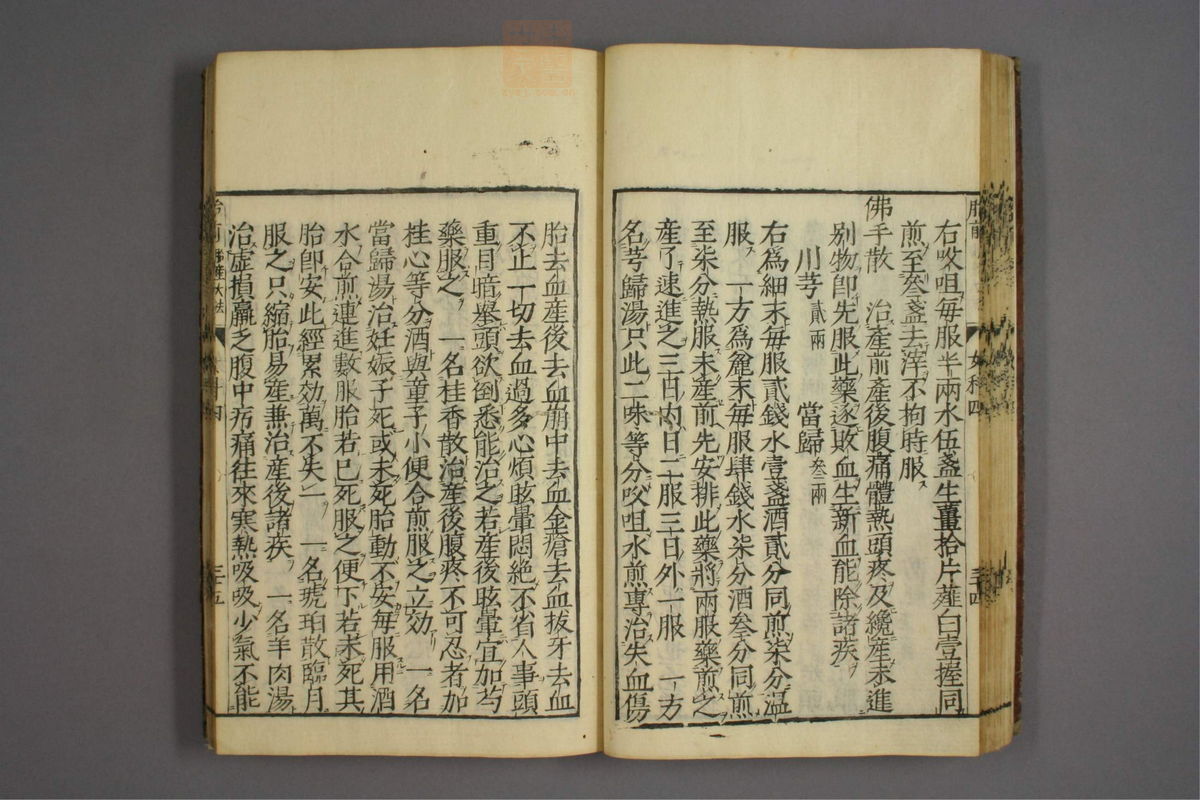 右㕮咀每服半兩水伍盞生薑拾片薤白壹握同
煎至叄盞去滓不拘時服
佛手散 治產前產後腹痛體熱頭疼及纔產未進
別物卽先服此藥逐敗血生新血能除諸疾
川芎貳兩 當歸叄兩
右爲細末每服貳錢水壹盞酒貳分同煎柒分溫
服 一方爲麄末每服肆錢水柒分酒叄分同煎
至柒分熱服未產前先安排此藥將兩服藥煎之
產了速進之三日內日二服三日外一服 一方
名芎歸湯只此二味等分㕮咀水煎專治失血傷
女科四
三十四
胎去血產後去血崩中去血金瘡去血拔牙去血
不止一切去血過多心煩眩暈悶絕不省人事頭
重目暗舉頭欲倒悉能治之若產後眩暈宜加芍
藥服之 一名桂香散治產後腹疼不可忍者加
桂心等分酒與童子小便合煎服之立効 一名
當歸湯治妊娠子死或未死胎動不安每服用酒
水合煎連進數服胎若已死服之便下若未死其
胎卽安此經累効萬不失一 一名琥珀散臨月
服之只縮胎易產兼治產後諸疾 一名羊肉湯
治虛損羸乏腹中㽲痛往來寒熱吸吸少氣不能